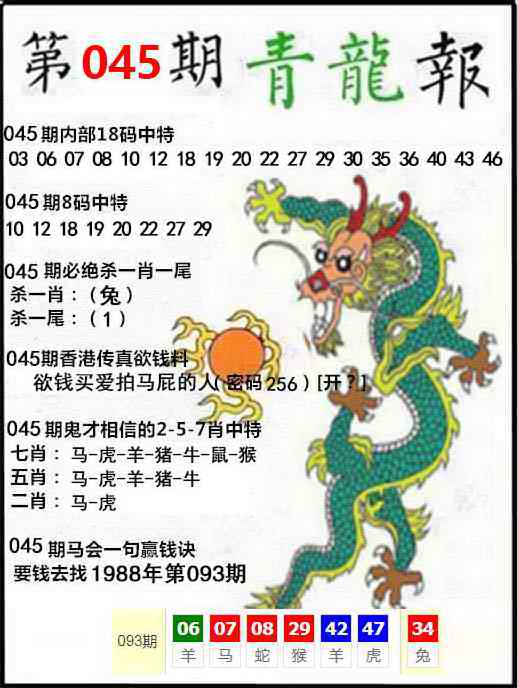 第045期 青龍報
045期内部18码中特
03 06 07 08 10 12 18 19 20 22 27 29 30 35 36 40 43 46
045期8码中特
10 12 18 19 20 22 27 29
045 期必绝杀一肖一尾
杀一肖：（兔）
杀一尾：（1）
045期香港传真欲钱料
欲钱买爱拍马屁的人（密码256）[开？]
045期鬼才相信的2-5-7肖中特
七肖：马-虎-羊-猪-牛-鼠-猴
五肖：马-虎-羊-猪-牛
二肖：马-虎
045期马会一句赢钱诀
要钱去找1988年第093期
093期 06 07 08 29 42 47 34
羊 马 蛇 猴 羊 虎 兔